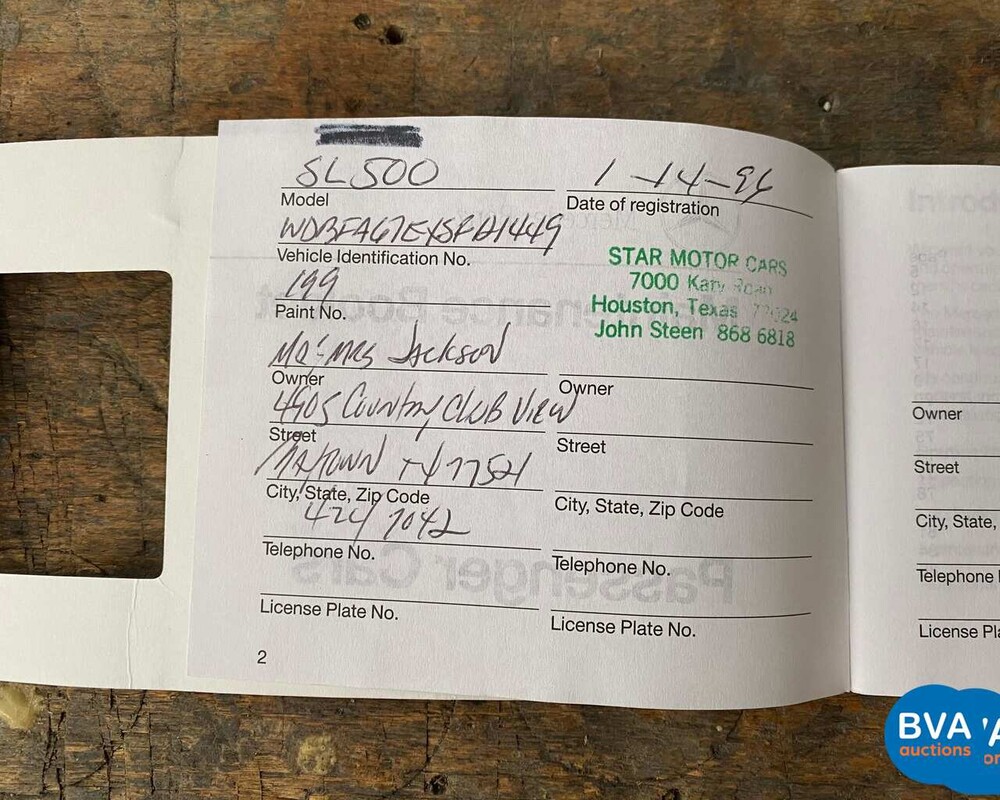 SL500
1-14-96
Model
Date of registration
WDBFA67EXSF
Vehicle Identification No.
STAR MOTOR CARS
199
7000 Katy Road
Paint No.
Houston, Texas 77024
John Steen 868 6818
Mr & Mrs Jackson
Owner
Owner
4905 Country Club View
Street
Street
TX 77521
City, State, Zip Code
City, State, Zip Code
424 7042
Telephone No.
Telephone No.
License Plate No.
License Plate No.
2
Owner
Street
City, State,
Telephone
License
BVA
auctions